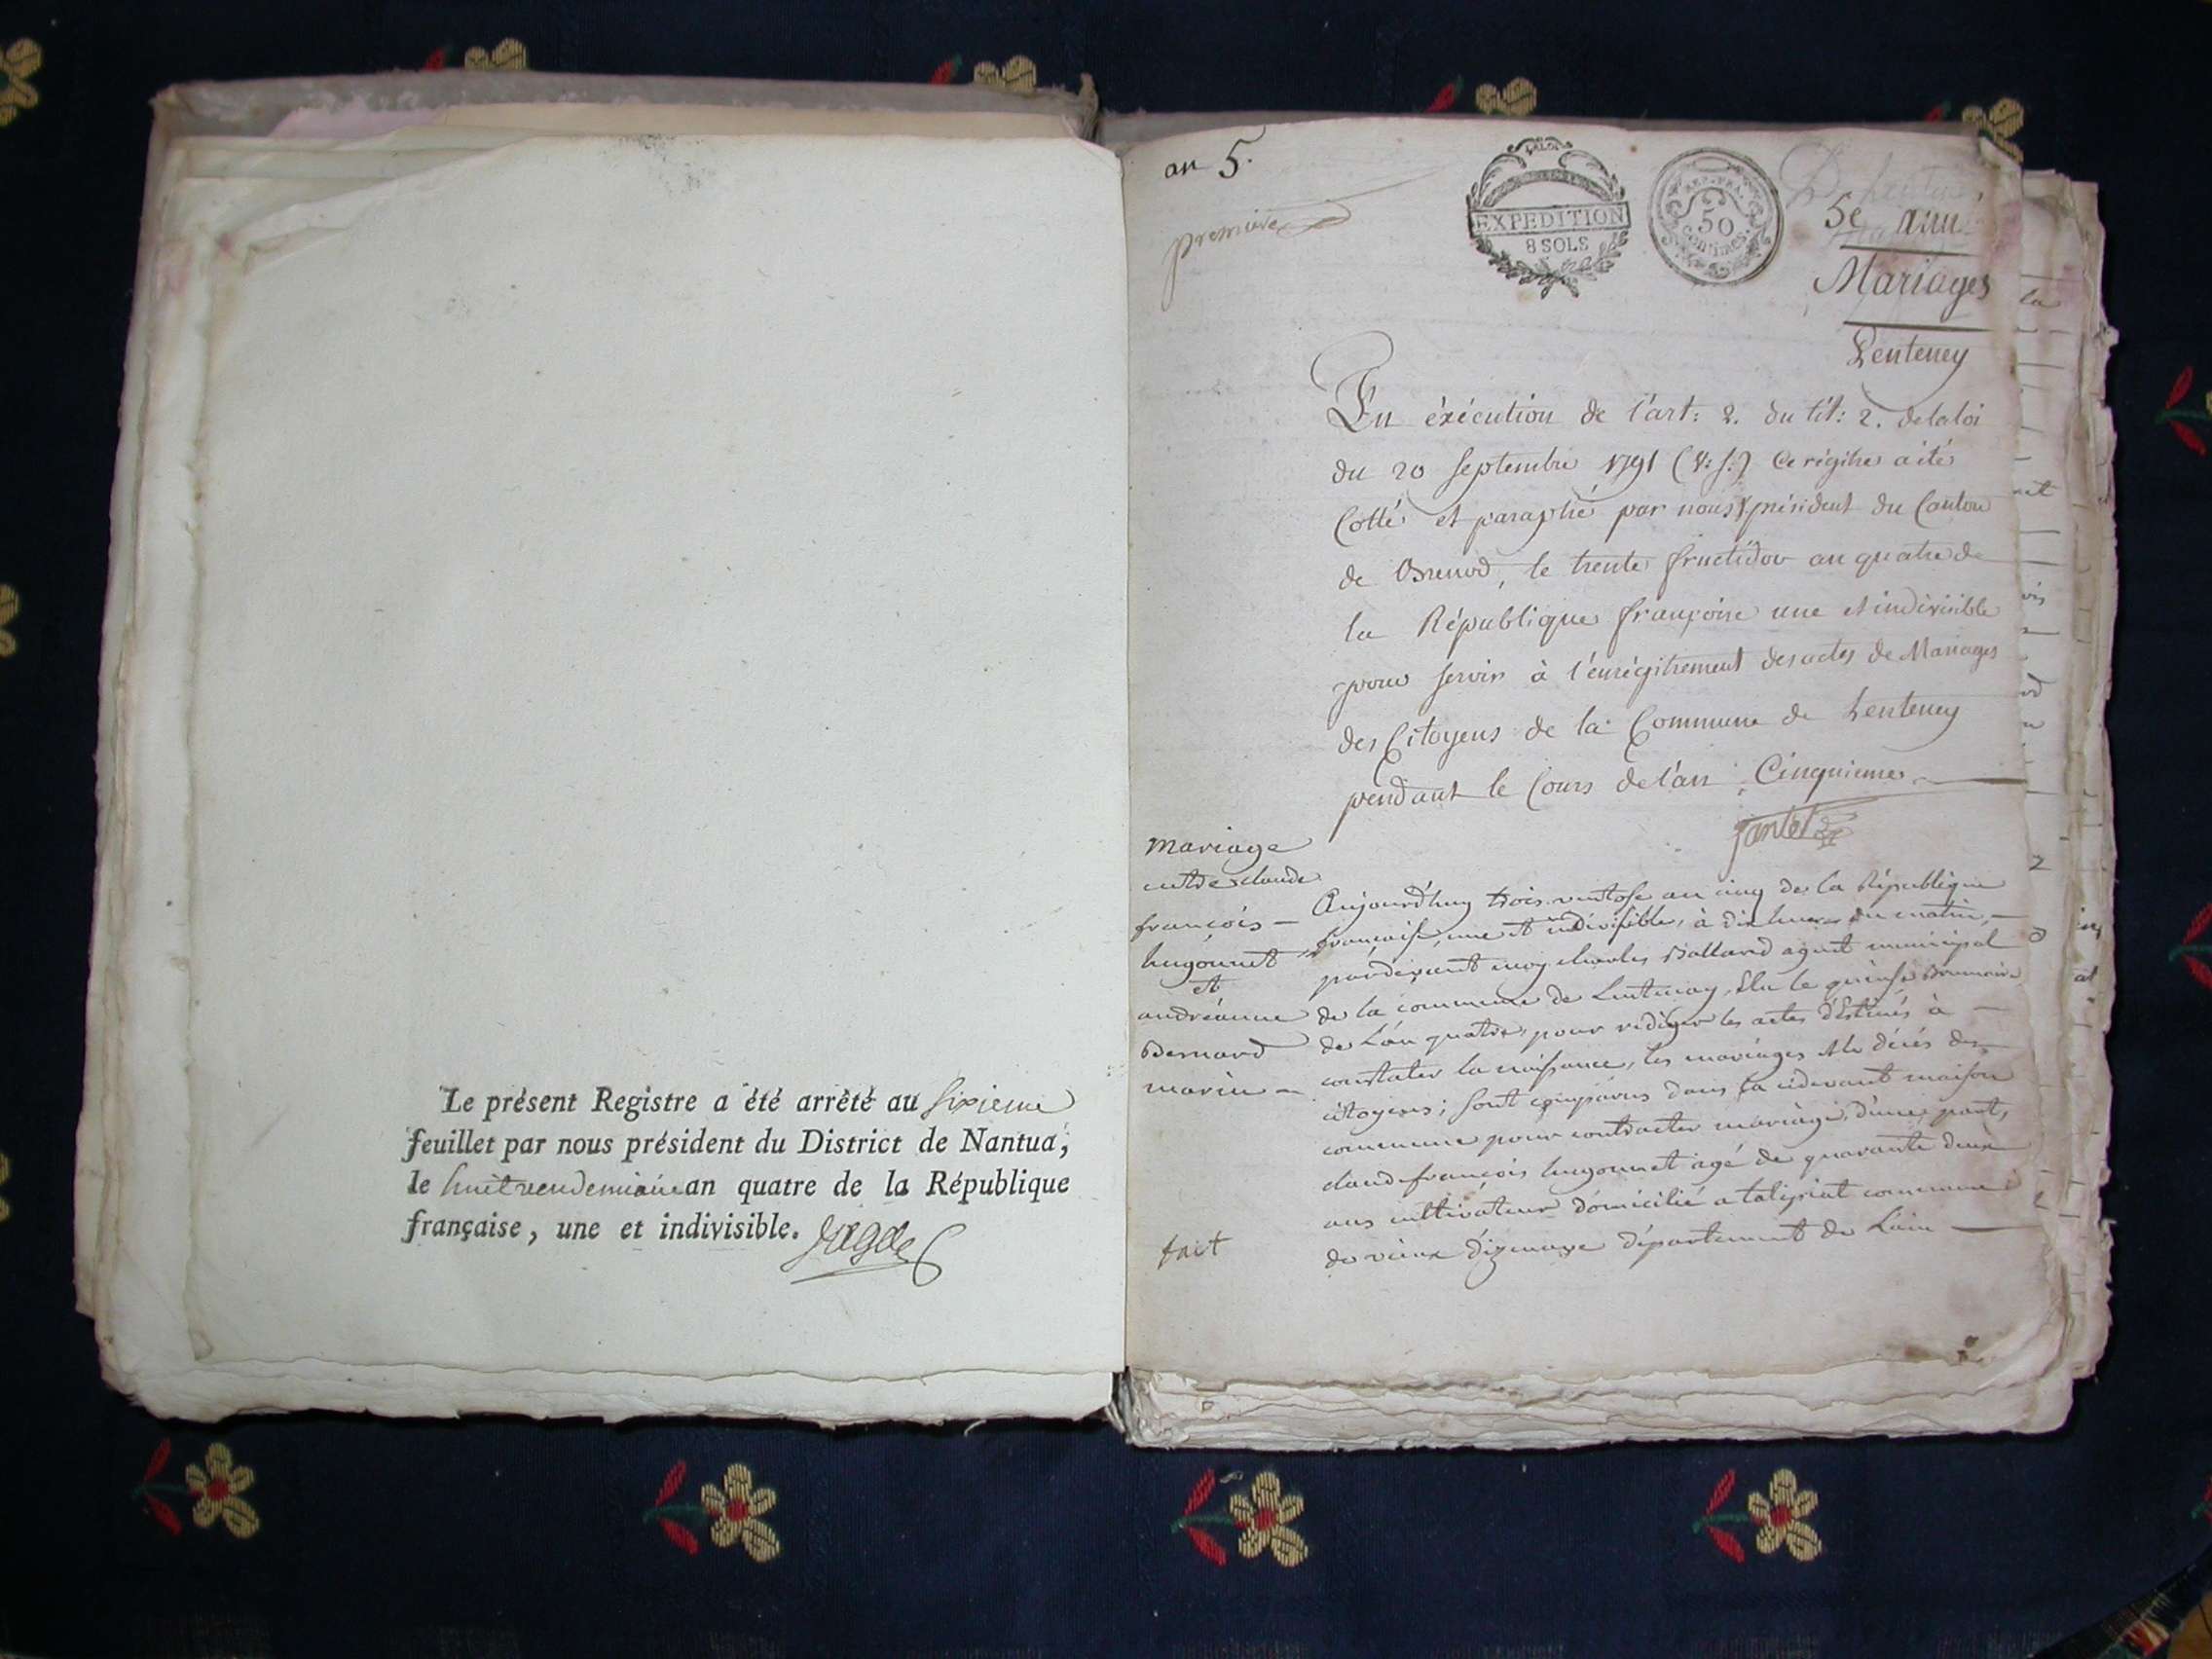 Le présent Registre a été arrêté au sixieme
feuillet par nous président du District de Nantua,
le huit vendemiaire an quatre de la République
française, une et indivisible.
an 5.
premiere
LA LOI
EXPEDITION
8 SOLS
REP. FRA.
50
centimes.
5e année
Mariages
Lenteney
En éxécution de l'art: 2. du tit: 2. de la loi
du 20 Septembre 1791 (V: S:) Ce régitre a été
Cotté et paraphé par nous président du Canton
de Brenod, le trente fructidor an quatre de
la République françoise une et indivisible
pour servir à l'enrégitrement des actes de Mariages
des Citoyens de la Commune de Lenteney
pendant le Cours de l'an Cinquieme
Jantet
mariage
entre claude
françois
hugonnet
et
andréanne
Bernard
marin
fait
Aujourd'huy trois ventose an cinq de la République
française, une et indivisible, à dix heures du matin,
pardevant moy charles Balland agent municipal
de la commune de Lentenay, Elu le quinse Brumaire
de L'an quatre, pour rediger les actes déstinés à
constater la naissance, les mariages et le décés des
citoyens; sont comparus dans la cidevant maison
commune pour contracter mariage, d'une part,
claude françois hugonnet agé de quarante deux
ans cultivateur domicilié a talipiat commune
de vieux d'izenave département de L'ain